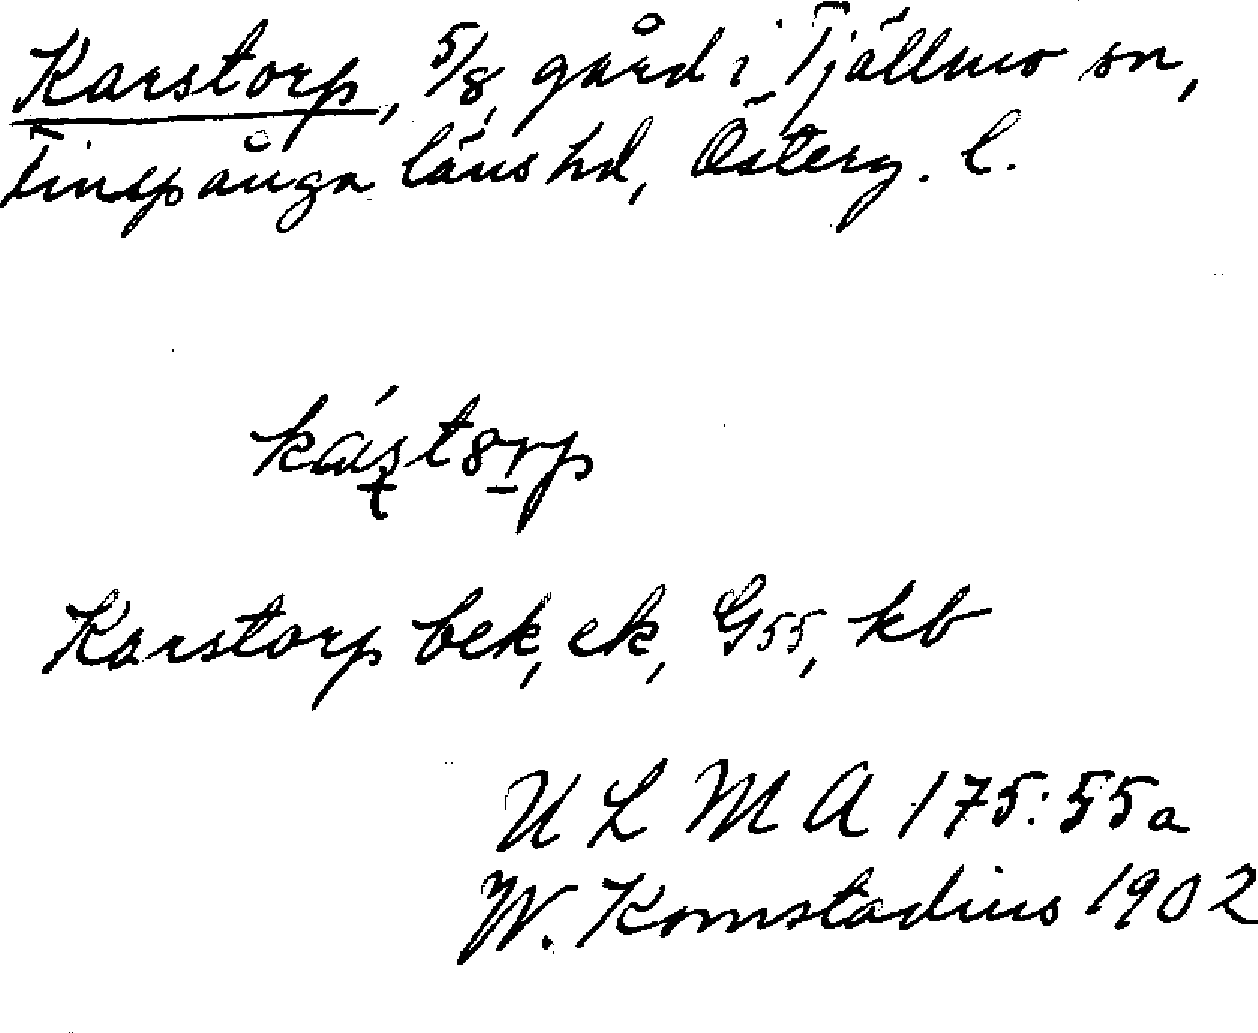 Karstorp, 5/8 gård i Tjällmo sn,
Finspånga läns hd, Österg. l.
kástorp
Karstorp bek, ek, G55, kb
U L M A 175:55a
W. Komstadius 1902